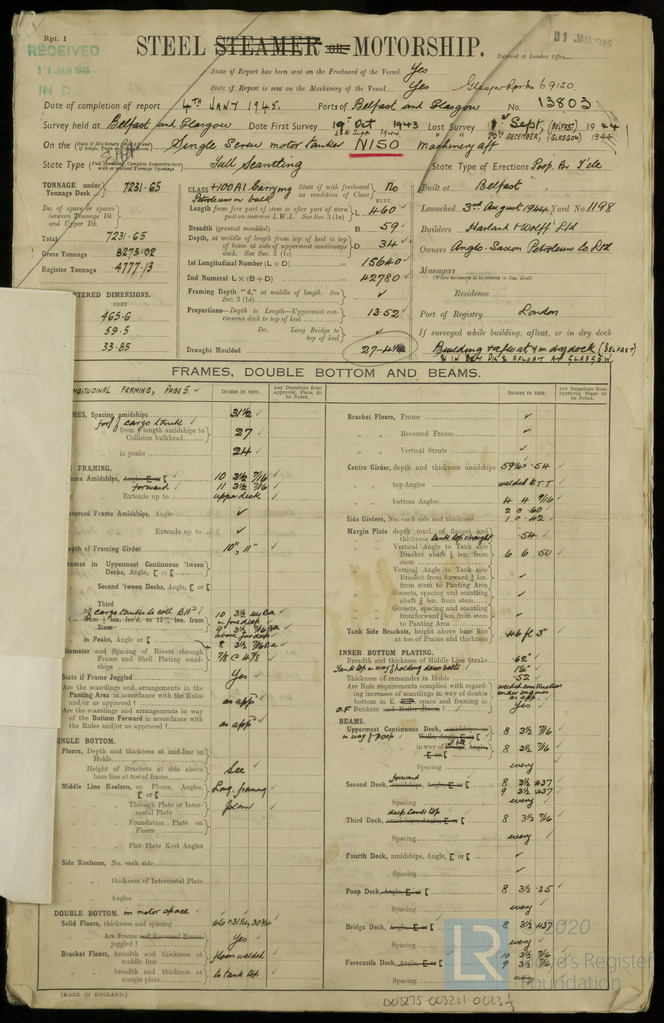 Rpt. 1
RECEIVED
11 JAN 1945
IN D
31 JAN 1945
STEEL STEAMER or MOTORSHIP.
Received at London Office
State if Report has been sent on the Freeboard of the Vessel Yes
State if Report is sent on the Machinery of the Vessel Yes
Glasgow Rpt No 69150
Date of completion of report 4TH JANY 1945. Ports of Belfast and Glasgow No. 13803
Survey held at Belfast and Glasgow Date First Survey 19th Oct 1943 Last Survey 1st Sept, (BELFAST) 1944
20TH DECEMBER, (GLASGOW) 1944
On the Single Screw motor tanker N150 Machinery aft
State Type Full Scantling
State Type of Erections Poop. Br. F'cle
TONNAGE under Tonnage Deck 7231.65
Do. of space or spaces between Tonnage Dk. and Upper Dk.
Total 7231.65
Gross Tonnage 8273.02
Register Tonnage 4777.13
REGISTERED DIMENSIONS.
FEET
465.6
59.5
33.85
CLASS +100A1 Carrying Petroleum in bulk State if with freeboard as condition of Class No
FEET
Length from fore part of stem to after part of stern post on summer L.W.L. See Sec. 3 (1a) L 460
Breadth (greatest moulded) B 59
Depth, at middle of length from top of keel to top of beam at side of uppermost continuous deck. See Sec. 3 (1c) D 34
1st Longitudinal Number (L × D) 15640
2nd Numeral L × (B + D) 42780
Framing Depth "d," at middle of length. See Sec. 3 (1d)
Proportions—Depth to Length—Uppermost continuous deck to top of keel 13.52
Do. Long Bridge to top of keel
Draught Moulded 27-4½
Built at Belfast
Launched 3rd August 1944 Yard No. 1198
Builders Harland & Wolff Ltd
Owners Anglo-Saxon Petroleum Co Ltd
Managers
Residence
Port of Registry London
If surveyed while building, afloat, or in dry dock
Building & afloat & in dry dock (BELFAST)
& IN DRY DK & AFLOAT AT GLASGOW.
FRAMES, DOUBLE BOTTOM AND BEAMS.
LONGITUDINAL FRAMING, PAGE 5.
INCHES IN SHIP.
Any Departure from Approved Plans to be Noted.
FRAMES, Spacing amidships 31½
for'd cargo tanks
from ⅕ length amidships to Collision bulkhead 27
in peaks 24
FRAMING.
Frame Amidships, Angle, E or [ 10 3½ 7/16
forward 11 3½ 7/16
Extends up to upper deck
Reversed Frame Amidships, Angle
Extends up to
Depth of Framing Girder 10", 11"
Frames in Uppermost Continuous 'tween Decks, Angle, [ or [
Second 'tween Decks, Angle, [ or [
Third
of cargo tanks to coll. BHd
in Peaks, Angle or [ 8 3½ 7/16 BA
Diameter and Spacing of Rivets through Frame and Shell Plating amidships 7/8 @ 4⅞
State if Frame Joggled Yes
Are the scantlings and arrangements in the Panting Area in accordance with the Rules and/or as approved? as app'd
Are the scantlings and arrangements in way of the Bottom Forward in accordance with the Rules and/or as approved? as app'd
SINGLE BOTTOM.
Floors, Depth and thickness at mid-line in Holds
Height of Brackets at side above base line at toe of frame See
Middle Line Keelson, on Floors, Angles, [ or [ Long. framing
Through Plate or Intercostal Plate plan
Foundation Plate on Floors
Flat Plate Keel Angles
Side Keelsons, No. each side
thickness of Intercostal Plate
Angles
DOUBLE BOTTOM. in motor space
Solid Floors, thickness and spacing
Are Frame and Reversed Frame joggled? Yes
Bracket Floors, breadth and thickness at middle line floors welded
breadth and thickness at margin plate to tank top
(MADE IN ENGLAND.)
INCHES IN SHIP.
Any Departure from Approved Plans to be Noted.
Bracket Floors, Frame
" " Reversed Frame
" " Vertical Struts
Centre Girder, depth and thickness amidships 59¼ × .54
" " top Angles welded to T.T
" " bottom Angles 4 4 9/16
2 @ .60
Side Girders, No. each side and thickness 1 @ .42
Margin Plate depth (excl. of flange) and thickness tank top straight .54
Vertical Angle to Tank side Bracket abaft ¼ len. from stem 6 6 .50
Vertical Angle to Tank side Bracket from forward ¼ len. from stem to Panting Area
Gussets, spacing and scantling abaft ¼ len. from stem
Gussets, spacing and scantling from forward ¼ len. from stem to Panting Area
Tank Side Brackets, height above base line at toe of Frame and thickness
INNER BOTTOM PLATING.
Breadth and thickness of Middle Line Strake 62"
Tank top in way of holding down bolts 1½"
Thickness of remainder in Holds .52
Are Rule requirements complied with regarding increases of scantlings in way of double bottom in E. space and framing in O.F Bunkers and Boiler Room? welded construction under engines as app. Yes
BEAMS.
Uppermost Continuous Deck, amidships 8 3½ 7/16
in way of Poop
in way of 8 3½ 7/16
Spacing every
Second Deck, forward amidships, Angle, E or [ 8 3½ .437
9 3½ .437
Spacing every
deep tank top
Third Deck, amidships, Angle, E or [ 8 3½ 7/16
Spacing every
Fourth Deck, amidships, Angle, [ or [
Spacing
Poop Deck, Angle, E or [ 8 3½ .35
Spacing every
Bridge Deck, Angle, E or [ 8 3½ .437
Spacing every
Forecastle Deck, Angle, E or [ 10 3½ 7/16
9 3½ 7/16
Spacing every
LR
© 2020
Lloyd's Register
Foundation
003275-003281-0023